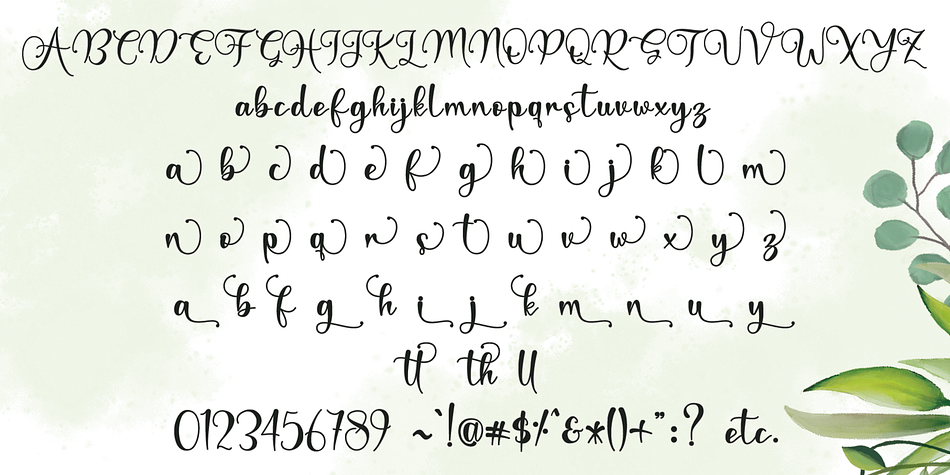 ABCDEFGHIJKLMNOPQRSTUVWXYZ
abcdefghijklmnopqrstuvwxyz
a b c d e f g h i j k l m
n o p q r s t u v w x y z
a b f g h i j k m n u y
tt th ll
0123456789 ~`!@#$%^&*()+":? etc.